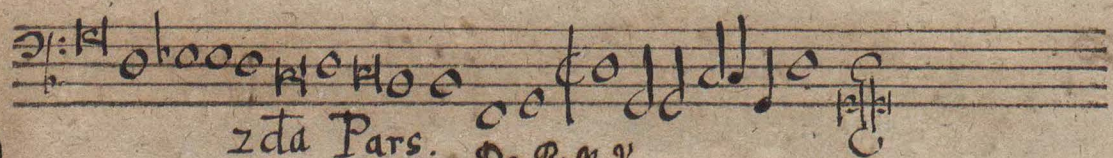 2da Pars.